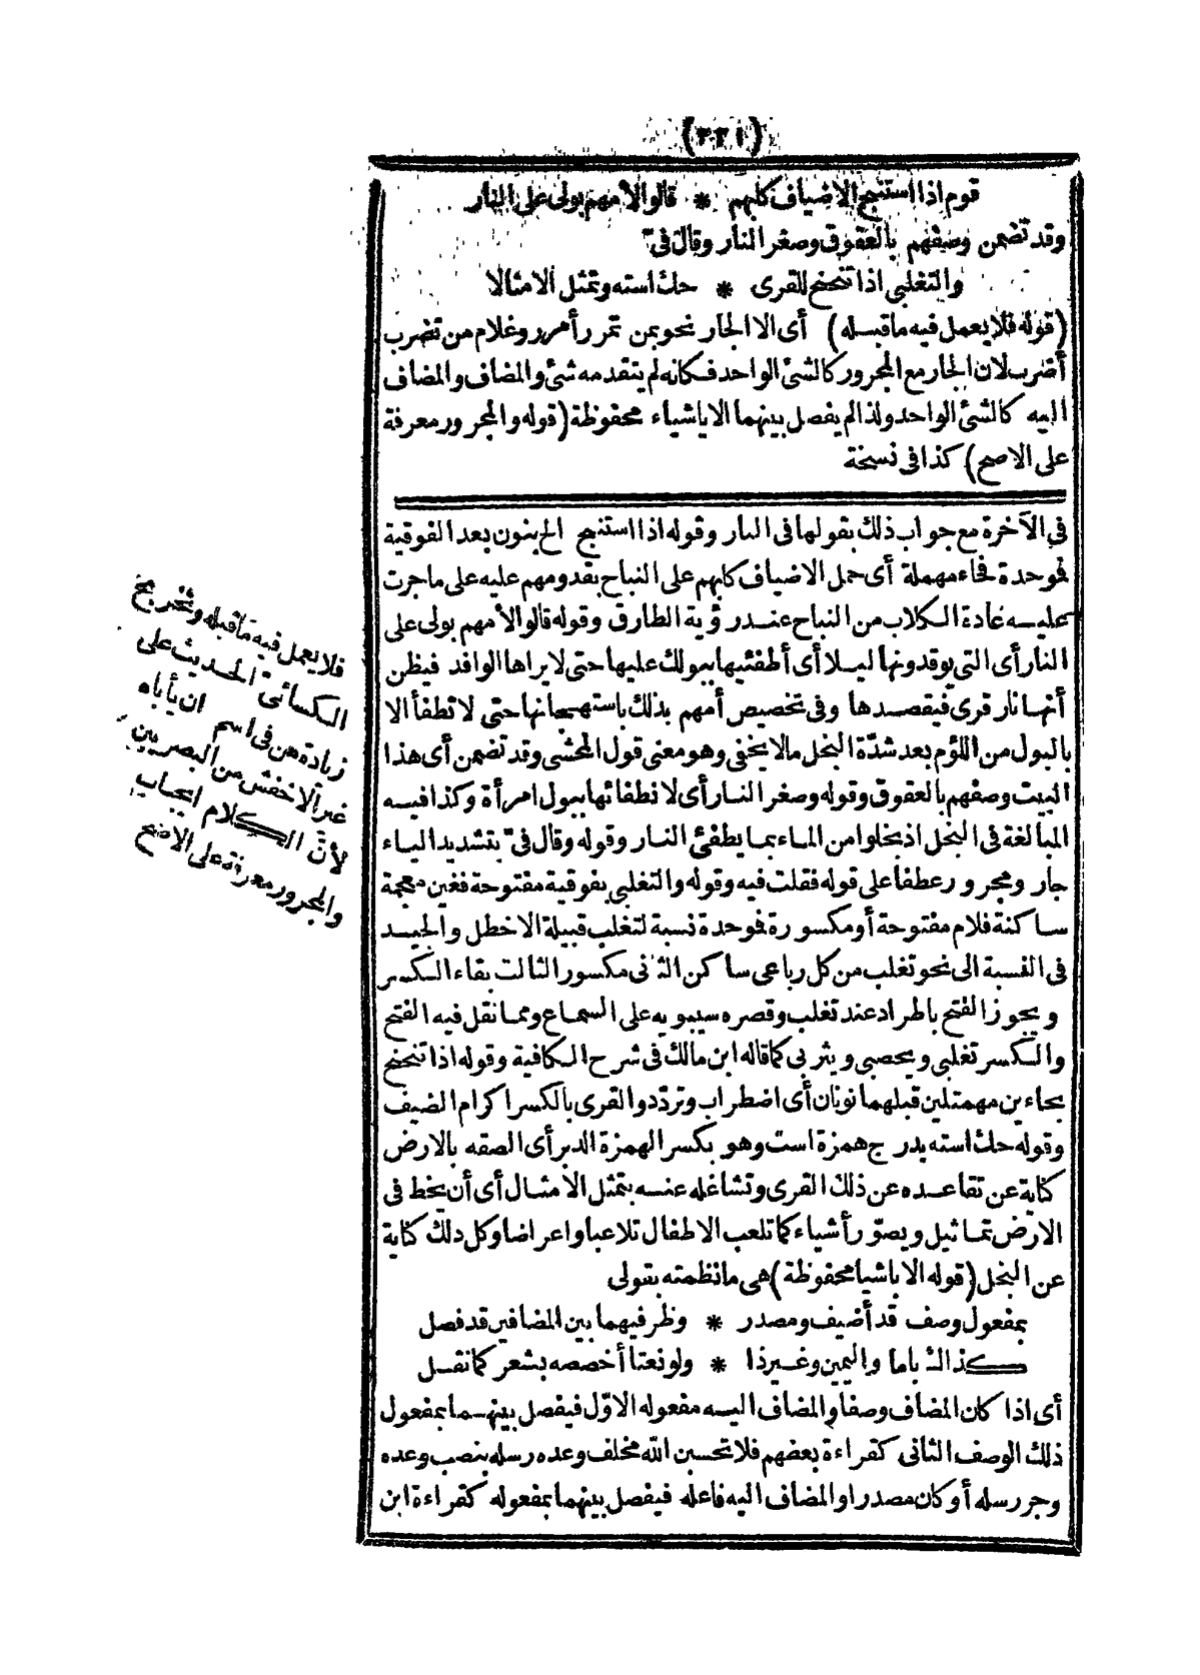 (٣٣١)
قوم اذا استنبح الاضياف كلبهم * قالوا لأمهم بولى على النار
وقد تضمن وصفهم بالعقوق وصغر النار وقال فىّ
والتغلبى اذا تنحنح للقرى * حك استه وتمثل الامثالا
(قوله فلا يعمل فيه ما قبله) أى الا الجار نحو بمن تمرر أمرر وغلام من تضرب
أضرب لان الجار مع المجرور كالشئ الواحد فكانه لم يتقدمه شئ والمضاف والمضاف
اليه كالشئ الواحد ولذا لم يفصل بينهما الا باشياء محفوظة (قوله والمجرور معرفة
على الاصح) كذا فى نسخة
فى الآخرة مع جواب ذلك بقولها فى النار وقوله اذا استنبح الخ بنون بعد الفوقية
فموحدة فحاء مهملة أى حمل الاضياف كلبهم على النباح بقدومهم عليه على ما جرت
عليه عادة الكلاب من النباح عند رؤية الطارق وقوله قالوا لأمهم بولى على
النار أى التى يوقدونها ليلا أى أطفئيها ببولك عليها حتى لا يراها الوافد فيظن
أنها نار قرى فيقصدها وفى تخصيص أمهم بذلك باستهجانها حتى لا تطفأ الا
بالبول من اللؤم بعد شدّة البخل ما لا يخفى وهو معنى قول المحشى وقد تضمن أى هذا
البيت وصفهم بالعقوق وقوله وصغر النار أى لانطفائها ببول امرأة وكذا فيه
المبالغة فى البخل اذ بخلوا من الماء بما يطفئ النار وقوله وقال فىّ بتشديد الياء
جار ومجرور عطفا على قوله فقلت فيه وقوله والتغلبى بفوقية مفتوحة فغين معجمة
ساكنة فلام مفتوحة أو مكسورة فموحدة نسبة لتغلب قبيلة الاخطل والجيد
فى النسبة الى نحو تغلب من كل رباعى ساكن الثانى مكسور الثالث بقاء الكسر
ويجوز الفتح باطراد عند تغلب وقصره سيبويه على السماع ومما نقل فيه الفتح
والكسر تغلبى ويحصبى ويثربى كما قاله ابن مالك فى شرح الكافية وقوله اذا تنحنح
بحاءين مهملتين قبلهما نونان أى اضطراب وتردّد والقرى بالكسر اكرام الضيف
وقوله حك استه بدرج همزة است وهو بكسر الهمزة الدبر أى الصقه بالارض
كناية عن تقاعده عن ذلك القرى وتشاغله عنه بتمثل الأمثال أى أن يخط فى
الارض تماثيل ويصوّر أشياء كما تلعب الاطفال تلاعبا واعراضا وكل ذلك كناية
عن البخل (قوله الا باشيا محفوظة) هى ما نظمته بقولى
بمفعول وصف قد أضيف ومصدر * وظرفيهما بين المضافين قد فصل
كذالك باما واليمين وغير ذا * ولو نعتا أخصصه بشعر كما نقل
أى اذا كان المضاف وصفا والمضاف اليه مفعوله الاوّل فيفصل بينهما بمفعول
ذلك الوصف الثانى كقراءة بعضهم فلا تحسبن الله مخلف وعده رسله بنصب وعده
وجر رسله أو كان مصدرا والمضاف اليه فاعله فيفصل بينهما بمفعوله كقراءة ابن
فلا يعمل فيه ما قبله وتخريج
الكسائى الحديث على
زيادة من فى اسم ان يأباه
غير الاخفش من البصريين
لأنّ الكلام ايجاب
والمجرور معرفة على الاصح